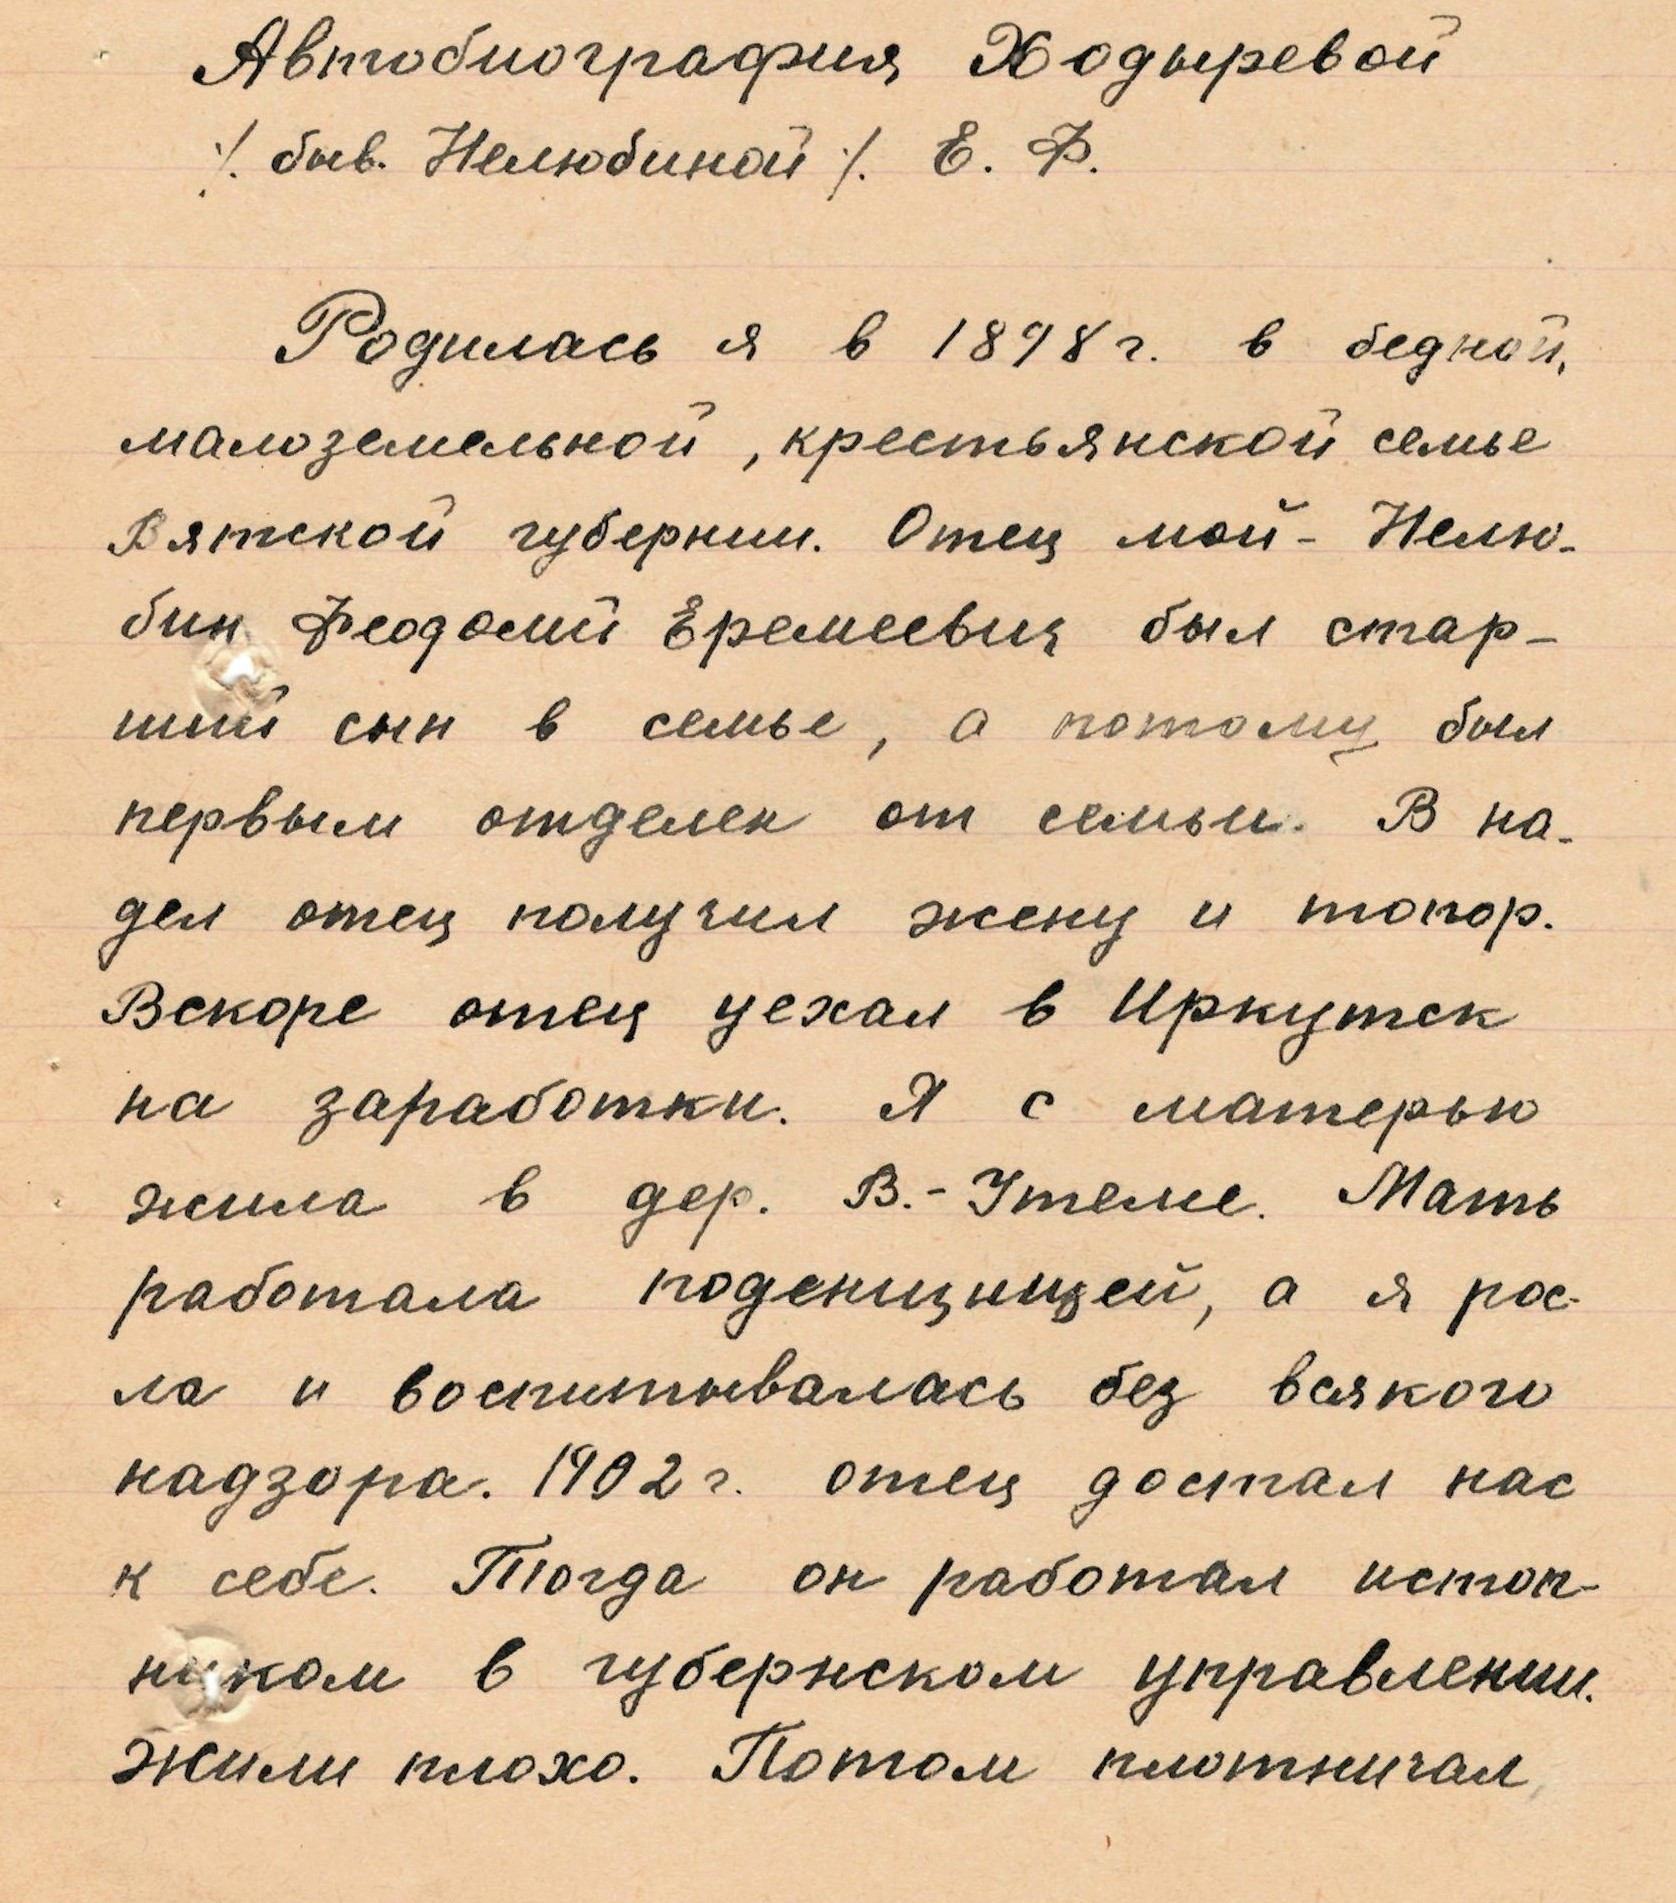 Автобиография Ходыревой
/. быв. Нелюбиной /. Е. Ф.
Родилась я в 1898 г. в бедной,
малоземельной, крестьянской семье
Вятской губернии. Отец мой - Нелю-
бин Феодолий Еремеевич был стар-
ший сын в семье, а потому был
первым отделен от семьи. В на-
дел отец получил жену и топор.
Вскоре отец уехал в Иркутск
на заработки. Я с матерью
жила в дер. В.-Утеме. Мать
работала поденщицей, а я рос-
ла и воспитывалась без всякого
надзора. 1902 г. отец достал нас
к себе. Тогда он работал истоп-
ником в губернском управлении.
Жили плохо. Потом плотничал